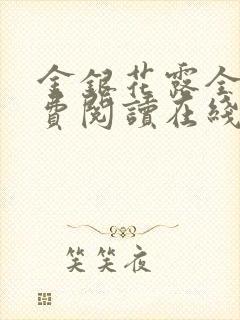 金銀花露全
費閱讀在綫
笑笑夜